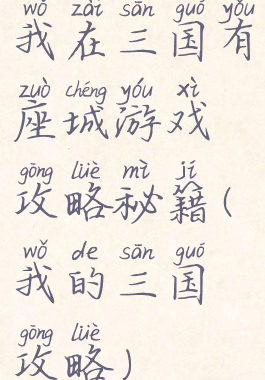 wǒ zài sān guó yǒu
我在三国有
zuò chéng yóu xì
座城游戏
gōng lüè mì jí
攻略秘籍(
wǒ de sān guó
我的三国
gōng lüè
攻略)